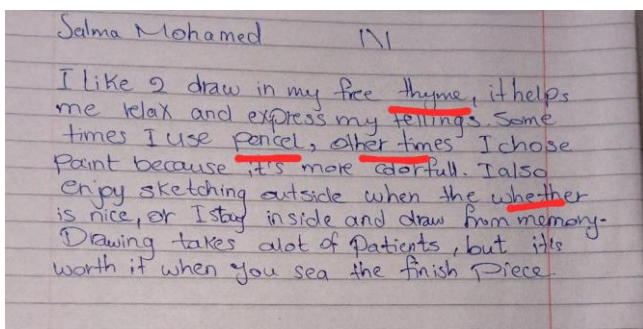 Salma Mohamed 1\1
I like 2 draw in my free thyme, it helps
me relax and express my fellings. Some
times I use pencel, other times I chose
paint because it's more colorfull. I also
enjoy sketching outside when the whether
is nice, or I stay inside and draw from memory.
Drawing takes alot of Patients, but it's
worth it when you sea the finish piece.